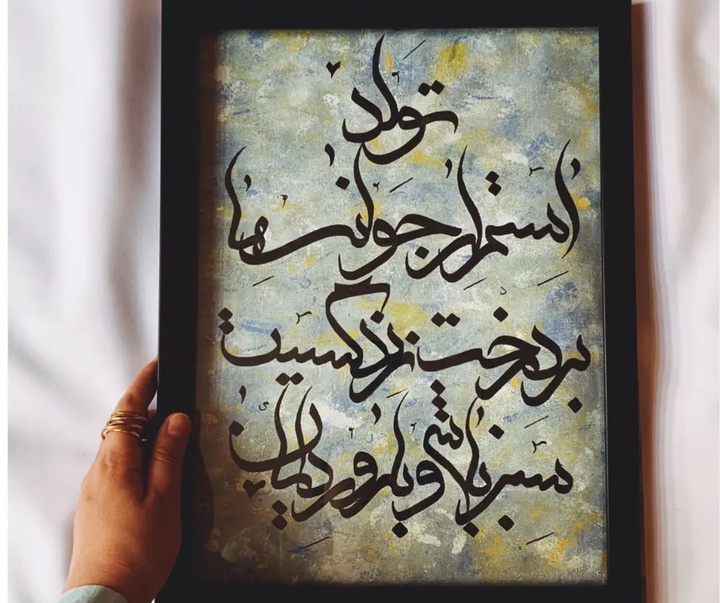 تولد
استمرار جوانه‌ها
بر درخت زندگیست
سبز باشی و بارور بمان